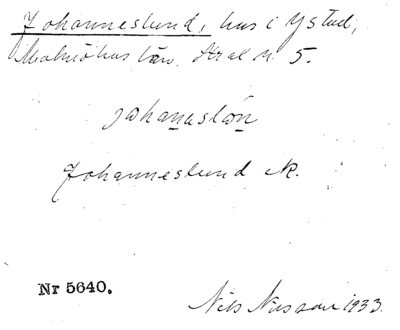 Johanneslund, hus i Ystad,
Malmöhus län. Str al n 5.
johanaslön
Johanneslund Ik.
Nr 5640.
Nils Nilsson 1933.